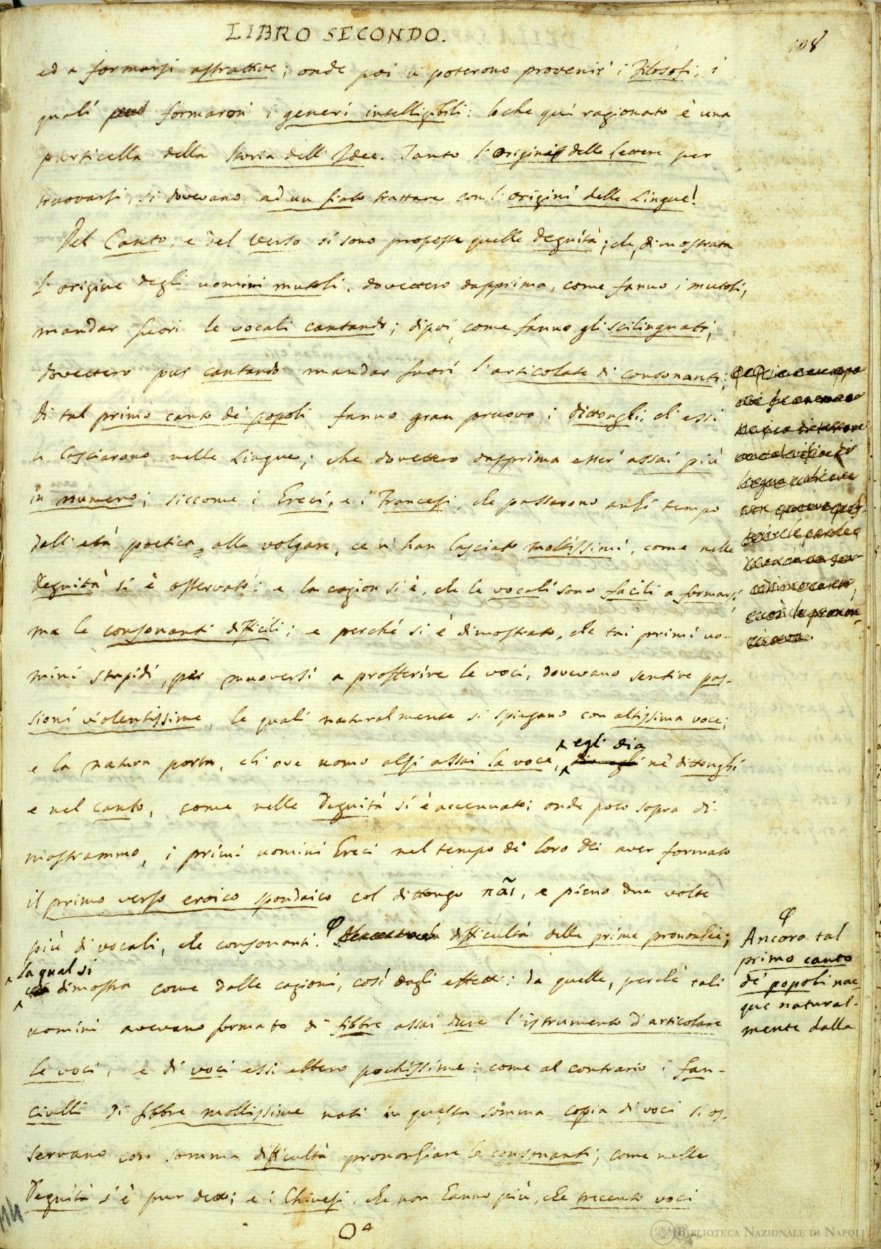 LIBRO SECONDO.
108
ed a formarsi astrattive; onde poi vi poterono provenir' i Filosofi, i
quali formaron' i generi intelligibili: loche quì ragionato è una
particella della Storia dell'Idee. Tanto l'Origini delle Lettere per
truovarsi, si dovevano ad un fiato trattare con l'origini delle Lingue!
Del Canto, e del verso si sono proposte quelle Degnità; che, dimostrata
l'origine degli uomini mutoli, dovettero dapprima, come fanno i mutoli,
mandar fuori le vocali cantando; dipoi, come fanno gli scilinguati,
dovettero pur cantando mandar fuori l'articolate di consonanti:
di tal primo canto de' popoli fanno gran pruova i dittongli, ch'essi
ci lasciarono nelle Lingue; che dovettero dapprima esser' assai più
in numero; siccome i Greci, e i Francesi, che passarono anzi tempo
dall'età poetica alla volgare, ce n'han lasciato moltissimi, come nelle
Degnità si è osservato: e la cagion si è, che le vocali sono facili a formarsi;
ma le consonanti difficili; e perchè si è dimostrato, che tai primi uo-
mini stupidi, per muoversi a profferire le voci, dovevano sentire pas-
sioni violentissime, le quali naturalmente si spiegano con altissima voce;
e la natura porta, ch'ove uomo alzi assai la voce, egli dia ne' dittonghi
e nel canto, come nelle Degnità si è accennato: onde poco sopra di-
mostrammo, i primi uomini Greci nel tempo de' loro Dei aver formato
il primo verso eroico spondaico col dittongo παι, e pieno due volte
più di vocali, che consonanti. φ difficultà delle prime prononzie;
la qual si dimostra come dalle cagioni, così dagli effetti: da quelle, perchè tali
uomini avevano formato di fibbre assai dure l'istrumento d'articolare
le voci, e di voci essi ebbero pochissime: come al contrario i fan-
ciulli di fibbre mollissime nati in questa somma copia di voci si os-
servano con somma difficultà prononziare le consonanti; come nelle
Degnità s'è pur detto; e i Chinesi, che non hanno più, che trecento voci
φ
Ancora tal
primo canto
de' popoli nac-
que natural-
mente dalla
BIBLIOTECA NAZIONALE DI NAPOLI